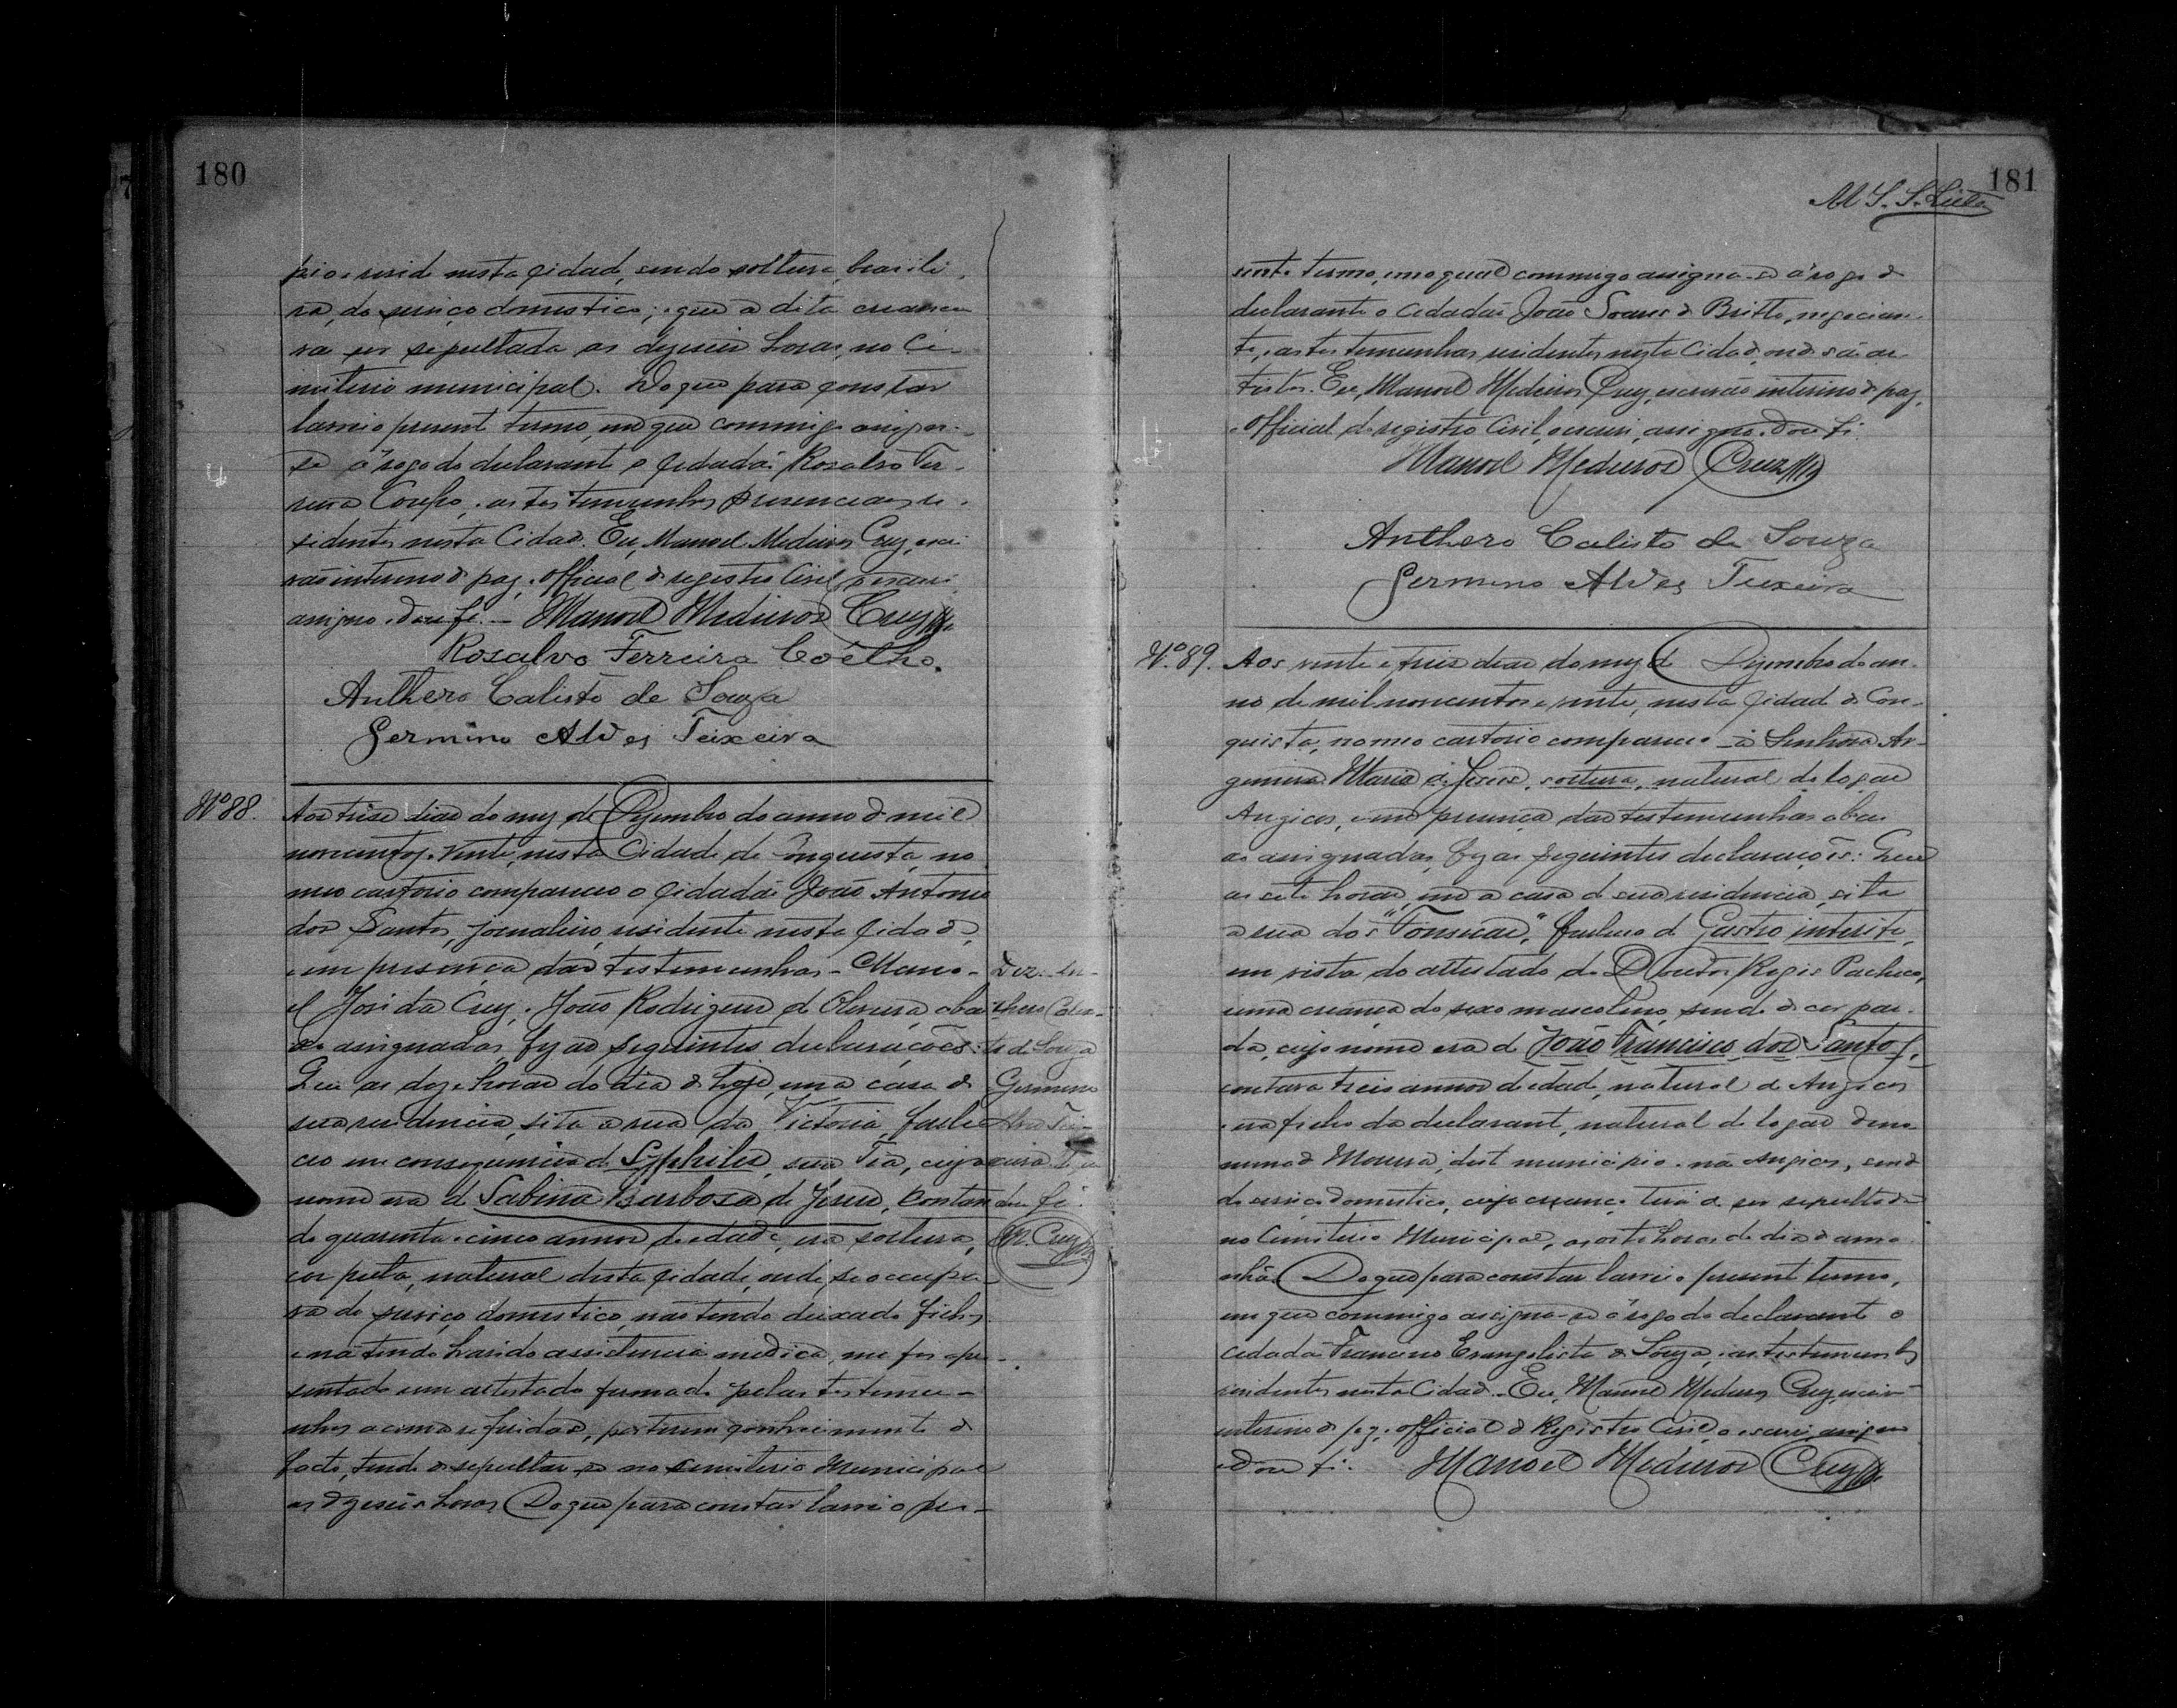 180
pio e reside nesta cidade, sendo solteira, brasilei-
ra, do serviço domestico; e que a dita creança
vae ser sepultada as dezeseis horas, no Ce-
miterio municipal. Do que para constar
lavrei o presente termo, em que commigo assigna-
se á rogo do declarante o cidadão Rosalvo Fer-
reira Coelho, e as testemunhas presenciaes re-
sidentes nesta Cidade. Eu, Manoel Medeiros Cruz, escri-
vão interino de paz, official do registro Civil, o escrevi
assigno e dou fé. - Manoel Medeiros Cruz
Rosalvo Ferreira Coêlho.
Anthero Calisto de Souza
Germino Alves Teixeira
Nº 88.
Aos treze dias do mez de Dezembro do anno de mil
novecentos e vinte, nesta Cidade de Conquista, no
meu cartorio compareceo o cidadão João Antonio
dos Santos, jornaleiro, residente nesta cidade,
e em presença das testemunhas - Mano-
el José da Cruz, e João Rodrigues de Oliveira, abai
xo assignadas, fez as seguintes declarações:
Que as doze horas do dia de hoje, em a casa de
sua residencia, sita a rua da Victoria, falle
ceo em consequencia de Syphilis, sua Tia, cujo
nome era de Sabina Barbosa de Jesus, contan
do quarenta e cinco annos de edade, era solteira,
cor preta, natural desta cidade, onde se occupa-
va do serviço domestico, não tendo deixado filhos
e não tendo havido assistencia medica, me foi apre-
sentado um attestado firmado pelas testemu-
nhas acima referidas, por terem conhecimento do
facto, tendo de sepultar-se no cemiterio Municipal
as dezeseis horas. Do que para constar lavrei o pre-
Diz. An-
thero Calis-
to de Souza
Germino
Alves Tei-
xeira
dou fé.
M. Cruz
181
sente termo, em o qual commigo assigna-se á rogo do
declarante o Cidadão João Soares de Britto, negocian-
te, e as testemunhas residentes nesta Cidade, onde são ar-
tistas. Eu, Manoel Medeiros Cruz, escrivão interino de paz,
official do registro Civil, o escrevi, assigno e dou fé.
Manoel Medeiros Cruz
Anthero Calisto de Souza
Germino Alves Teixeira
Nº 89.
Aos vinte e treis dias do mez de Dezembro do an-
no de mil novecentos e vinte, nesta cidade de Con-
quista, no meo cartorio compareceo a Senhora Ar-
gemira Maria de Jesus, solteira, natural do logar
Angicos, e em presença das testemunhas abai
xo assignadas, fez as seguintes declarações: Que
as sete horas, em a casa de sua residencia, sita
a rua dos "Fonsecas", falleceo de Gastro interite,
em vista do attestado do Doutor Regis Pacheco,
uma creança do sexo mascolino, sendo de cor par-
da, cujo nome era de João Francisco dos Santos,
contava treis annos de edade, natural de Angicos
era filho da declarante, natural do logar deno-
minado Morena, deste municipio e não Angicos, sendo
do serviço domestico, cuja creança terá de ser sepultada
no Cemiterio Municipal, as oito horas do dia de ama-
nhã. Do que para constar lavrei o presente termo,
em que commigo assigna-se á rogo do declarante o
cidadão Francisco Evangelista de Souza, e as testemunhas
residentes nesta Cidade. Eu, Manoel Medeiros Cruz, escrivão
interino de paz, official do Registro Civil, o escrevi, assigno
e dou fé. Manoel Medeiros Cruz